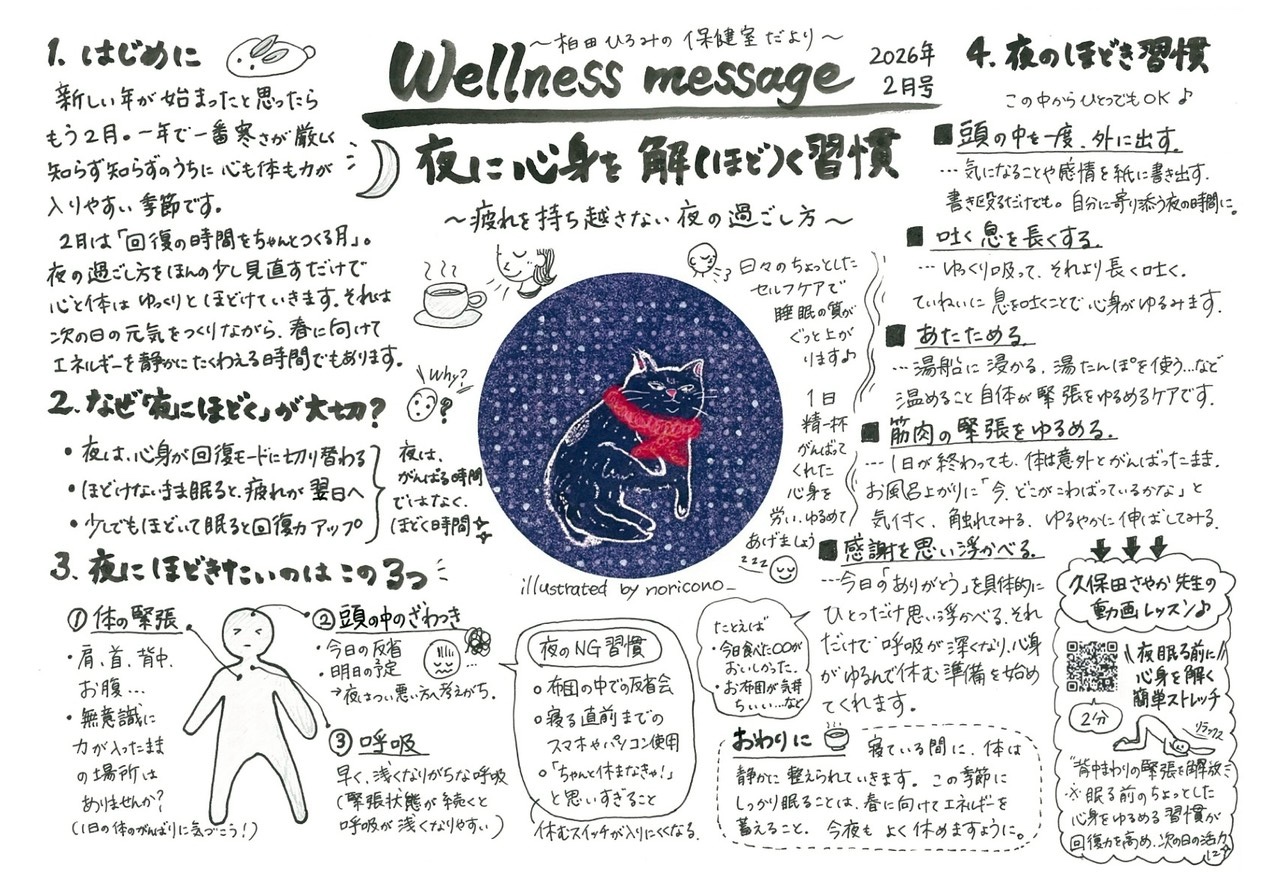 ～柏田ひろみの保健室だより～
Wellness message
2026年
2月号
夜に心身を解(ほど)く習慣
～疲れを持ち越さない夜の過ごし方～
1. はじめに
新しい年が始まったと思ったら
もう2月。一年で一番寒さが厳しく
知らず知らずのうちに心も体も力が
入りやすい季節です。
2月は「回復の時間をちゃんとつくる月」。
夜の過ごし方をほんの少し見直すだけで
心と体はゆっくりとほどけていきます。それは
次の日の元気をつくりながら、春に向けて
エネルギーを静かにたくわえる時間でもあります。
2. なぜ「夜にほどく」が大切?
Why?
?
・夜は、心身が回復モードに切り替わる
・ほどけないまま眠ると、疲れが翌日へ
・少しでもほどいて眠ると回復力アップ
夜は、
がんばる時間
ではなく、
ほどく時間
3. 夜にほどきたいのはこの3つ
①体の緊張
・肩、首、背中、
お腹…
・無意識に
力が入ったまま
の場所は
ありませんか?
(1日の体のがんばりに気づこう!)
②頭の中のざわつき
・今日の反省
・明日の予定
→夜はつい悪い方へ考えがち。
③呼吸
早く、浅くなりがちな呼吸
(緊張状態が続くと
呼吸が浅くなりやすい)
日々のちょっとした
セルフケアで
睡眠の質が
ぐっと上が
ります♪
1日
精一杯
がんばって
くれた
心身を
労い、ゆるめて
あげましょう
zzz
illustrated by noricono_
夜のNG習慣
○布団の中での反省会
○寝る直前までの
スマホやパソコン使用
○「ちゃんと休まなきゃ!」
と思いすぎること
休むスイッチが入りにくくなる。
4. 夜のほどき習慣
この中からひとつでもOK♪
■頭の中を一度、外に出す。
…気になることや感情を紙に書き出す。
書き殴るだけでも。自分に寄り添う夜の時間に。
■吐く息を長くする。
…ゆっくり吸って、それより長く吐く。
ていねいに息を吐くことで心身がゆるみます。
■あたためる。
…湯船に浸かる、湯たんぽを使う…など
温めること自体が緊張をゆるめるケアです。
■筋肉の緊張をゆるめる。
…1日が終わっても、体は意外とがんばったまま。
お風呂上がりに「今、どこがこわばっているかな」と
気付く、触れてみる、ゆるやかに伸ばしてみる。
■感謝を思い浮かべる。
…今日の「ありがとう」を具体的に
ひとつだけ思い浮かべる。それ
だけで呼吸が深くなり、心身
がゆるんで休む準備を始め
てくれます。
たとえば
・今日食べた○○が
おいしかった。
・お布団が気持
ちいい…など
おわりに
寝ている間に、体は
静かに整えられていきます。この季節に
しっかり眠ることは、春に向けてエネルギーを
蓄えること。今夜もよく休めますように。
久保田さやか先生の
動画レッスン♪
夜眠る前に
心身を解く
簡単ストレッチ
2分
リラックス
"背中まわりの緊張を解放"
※眠る前のちょっとした
心身をゆるめる習慣が
回復力を高め、次の日の活力
に☆